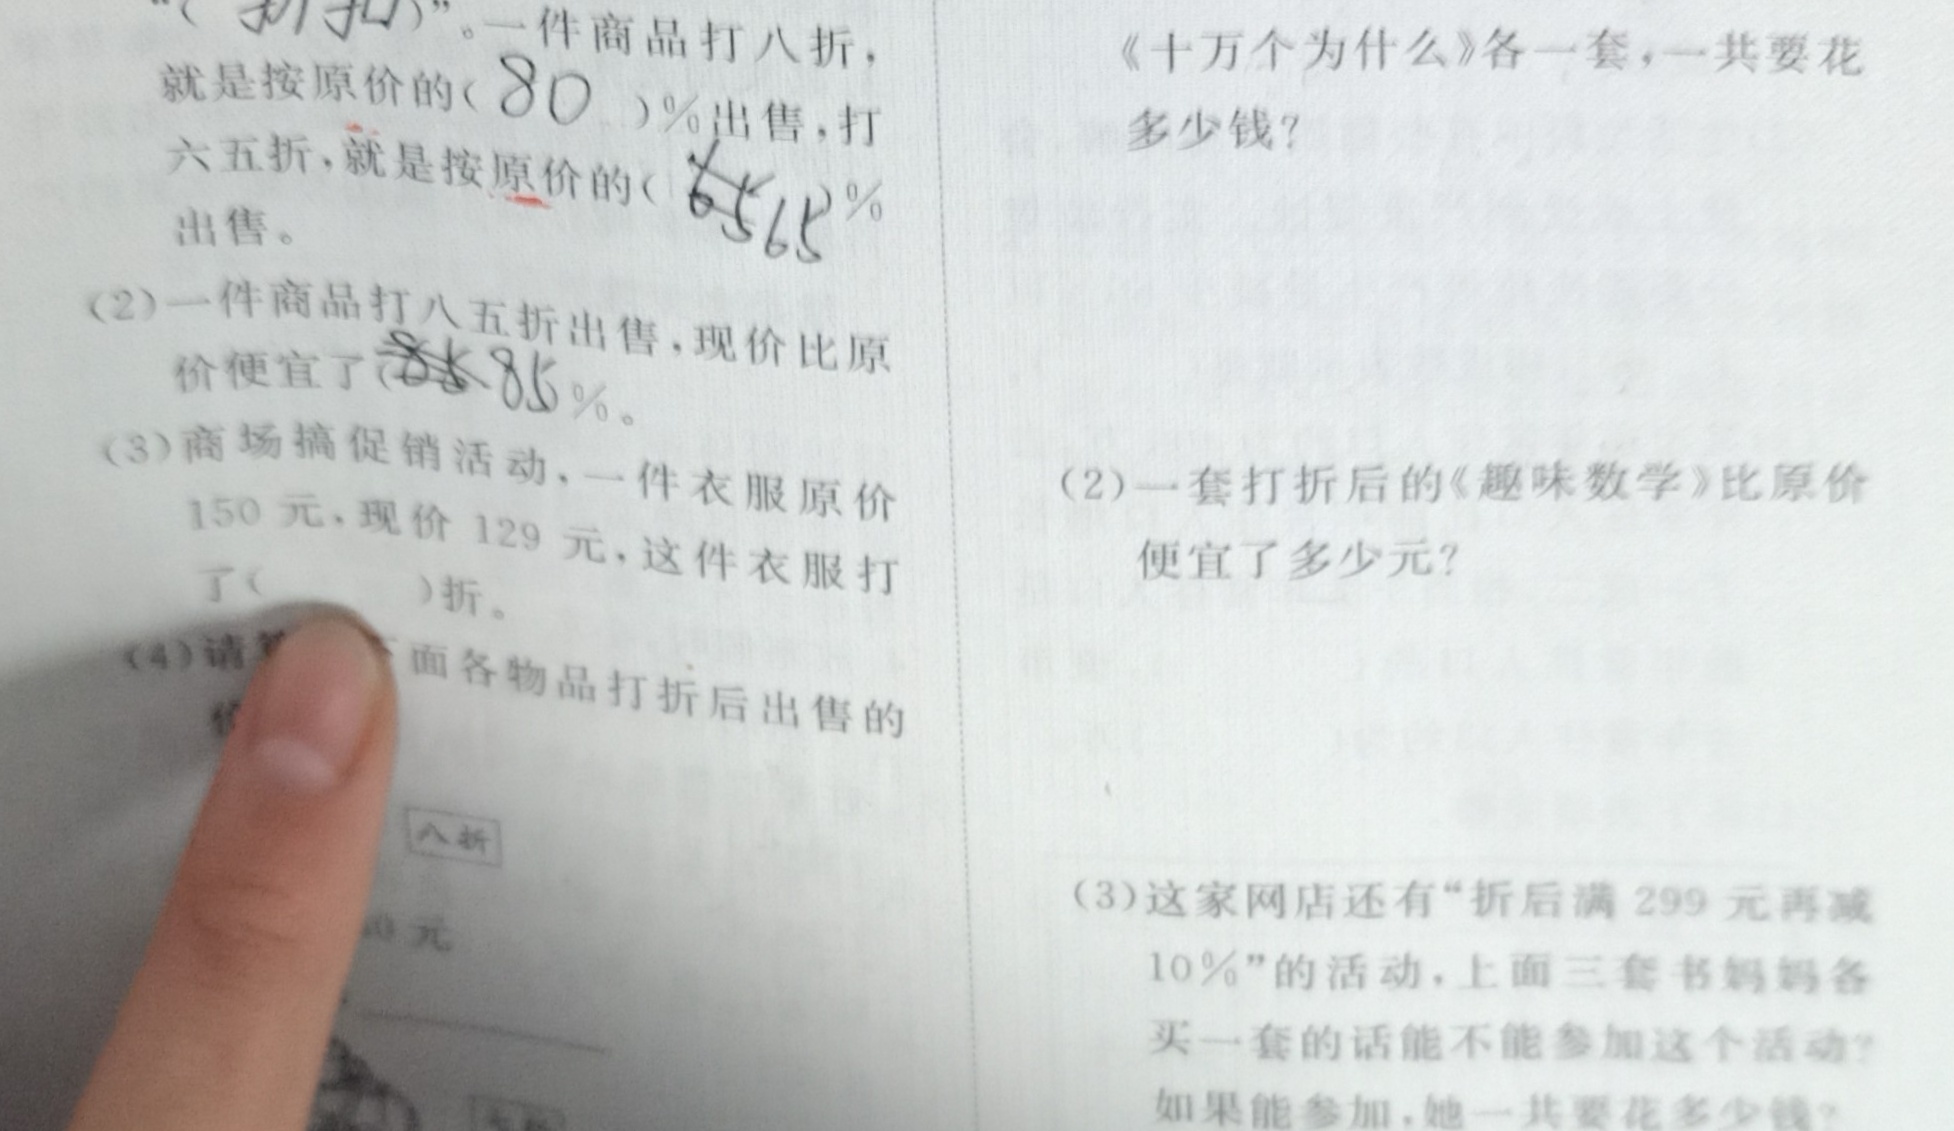 “(折扣)”。一件商品打八折，
就是按原价的(80)%出售，打
六五折，就是按原价的(65)%
出售。
(2)一件商品打八五折出售，现价比原
价便宜了(85%。
(3)商场搞促销活动，一件衣服原价
150元，现价129元，这件衣服打
了( )折。
(4)请 面各物品打折后出售的
八折
0元
《十万个为什么》各一套，一共要花
多少钱？
(2)一套打折后的《趣味数学》比原价
便宜了多少元？
(3)这家网店还有“折后满299元再减
10%”的活动，上面三套书妈妈各
买一套的话能不能参加这个活动？
如果能参加，她一共要花多少钱？